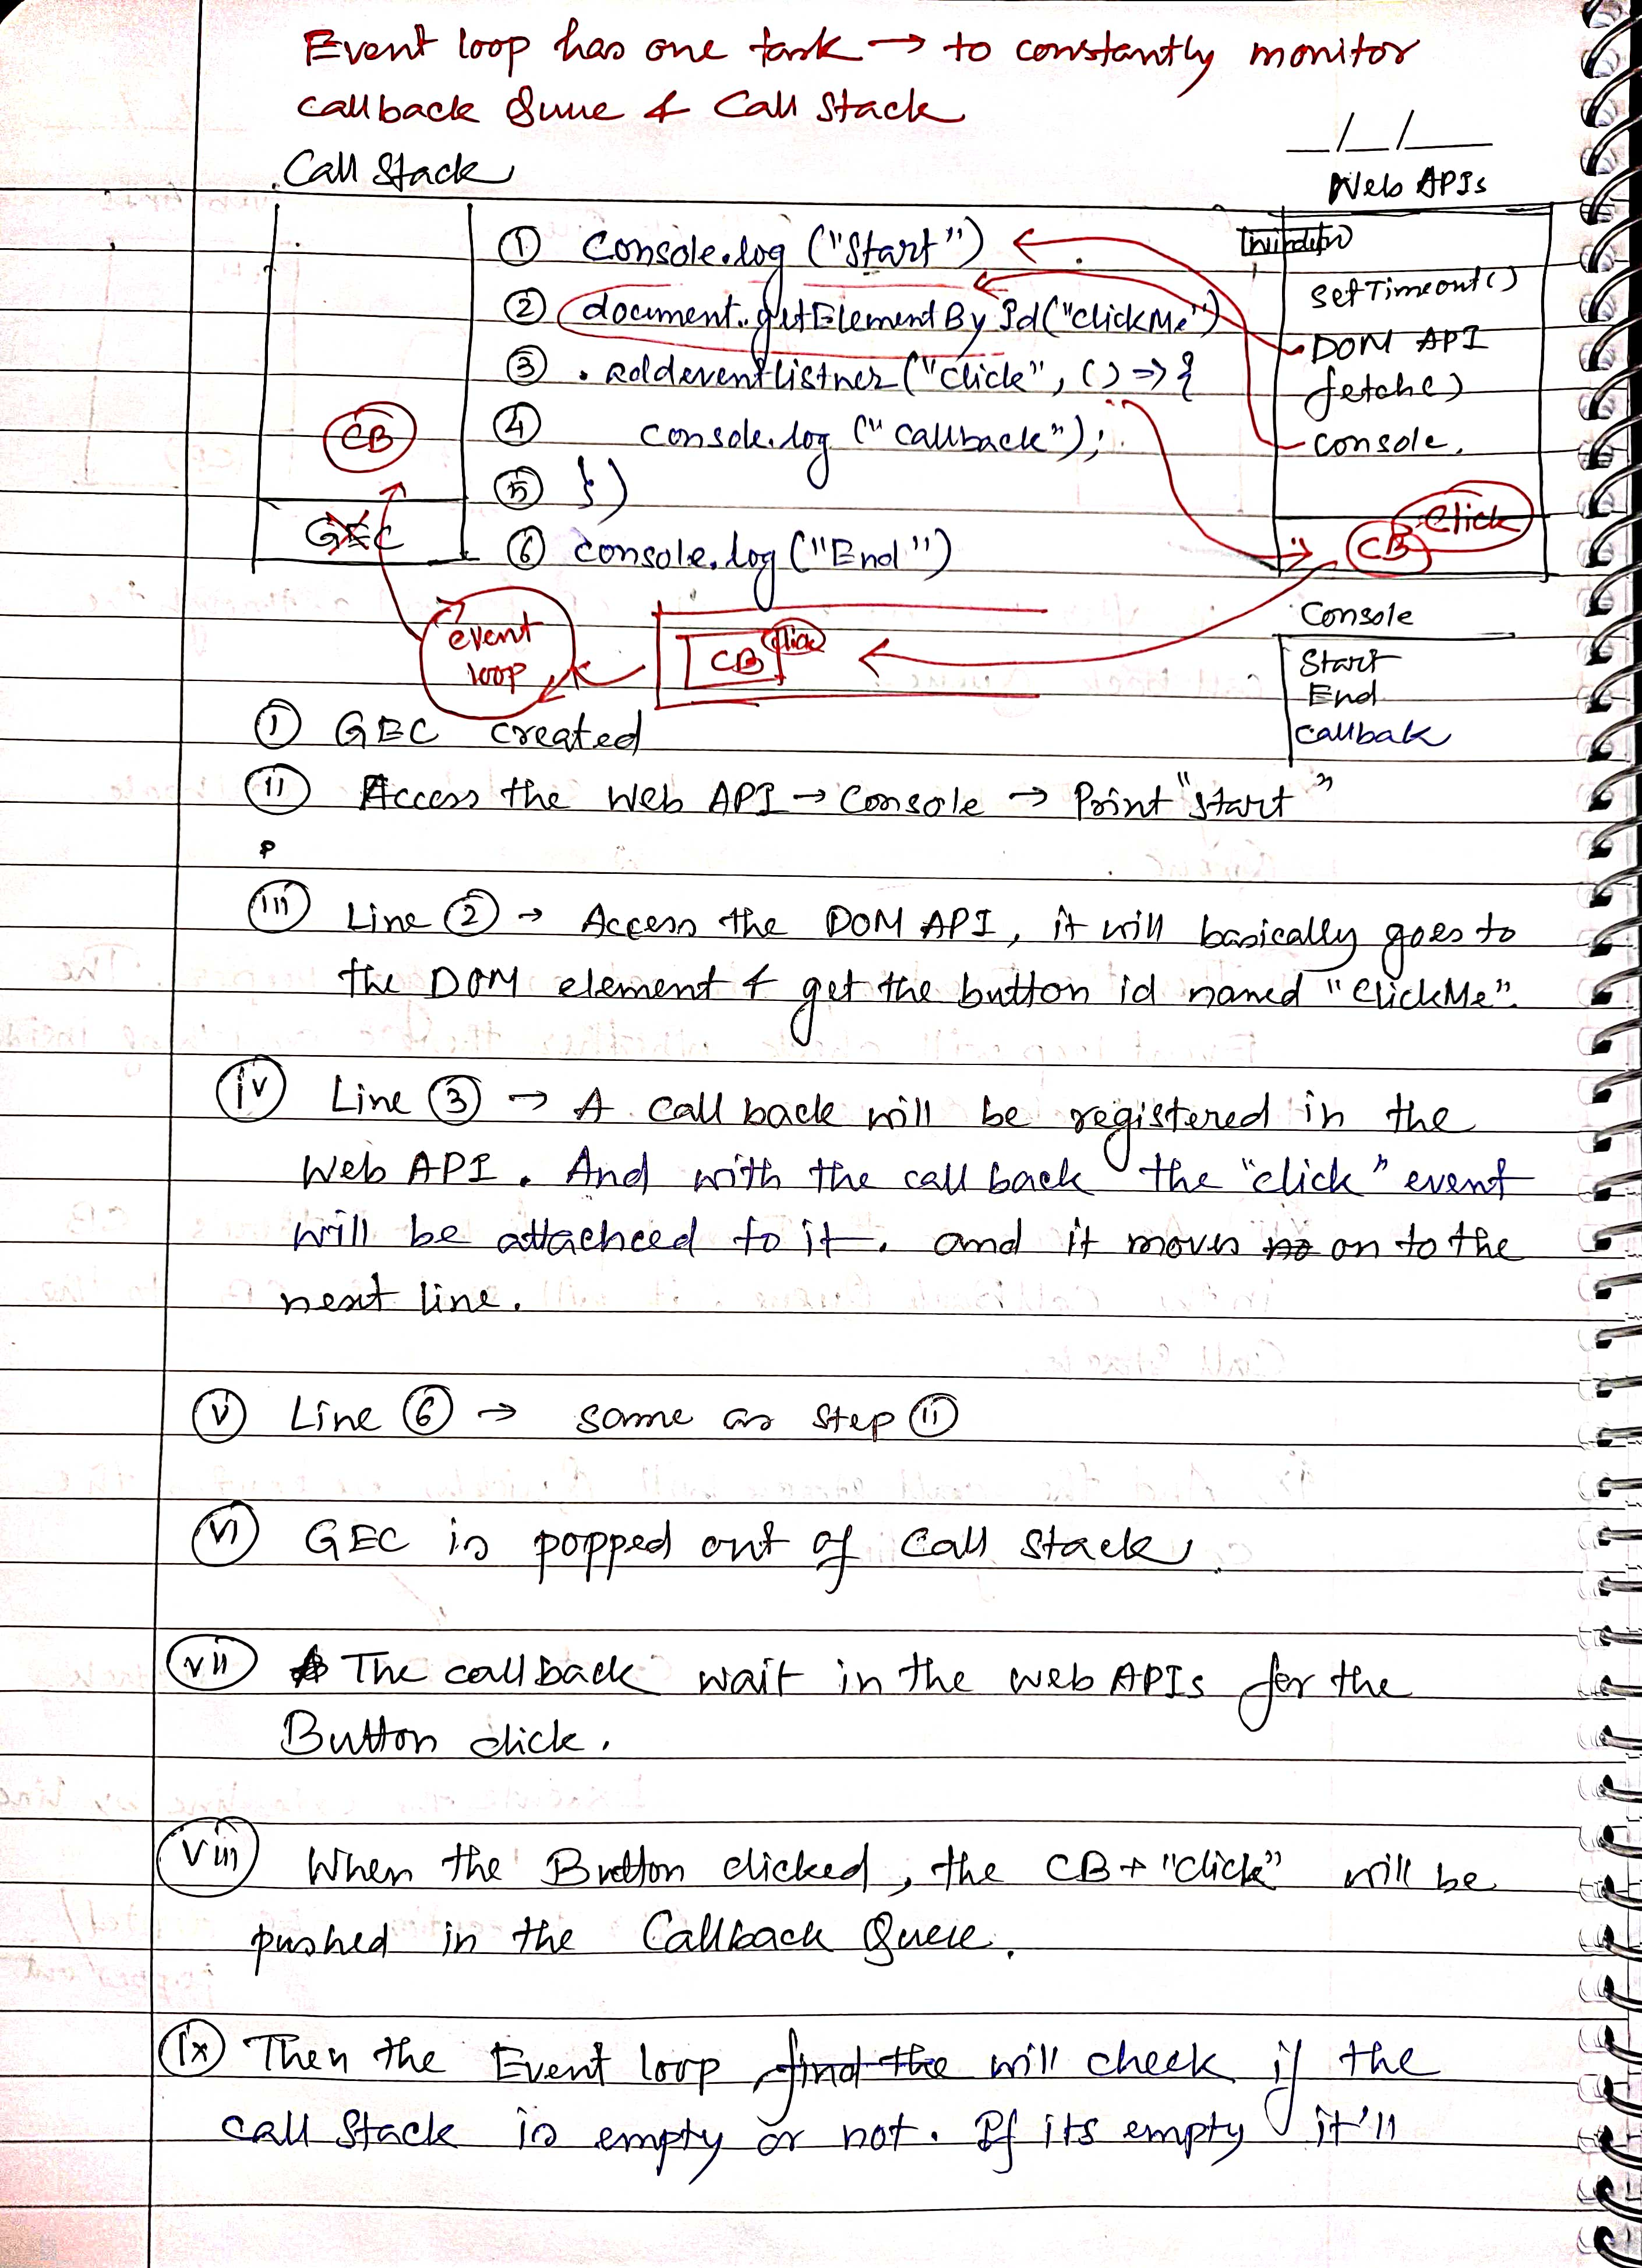 Event loop has one task → to constantly monitor
callback Queue & Call Stack
__/__/____
Call Stack
Web APIs
① Console.log ("Start")
② document.getElementById("clickMe")
③ .addeventlistner("click", () => {
④ console.log ("callback");
⑤ })
⑥ console.log ("End")
CB
GEC
window
setTimeout()
DOM API
fetch()
console.
CB Click
event
loop
CB Click
Console
Start
End
Callbak
ⓘ GEC created
(ii) Access the Web API → Console → Print "Start"
(iii) Line ② → Access the DOM API, it will basically goes to
the DOM element & get the button id named "clickMe".
(iv) Line ③ → A call back will be registered in the
Web API. And with the call back the "click" event
will be attacheed to it. and it moves on to the
next line.
(v) Line ⑥ → same as step (ii)
(vi) GEC is popped out of Call Stack.
(vii) The callback wait in the web APIs for the
Button click.
(viii) When the Button clicked, the CB + "click" will be
pushed in the Callback Queue.
(ix) Then the Event loop find the will check if the
call Stack is empty or not. If its empty it'll